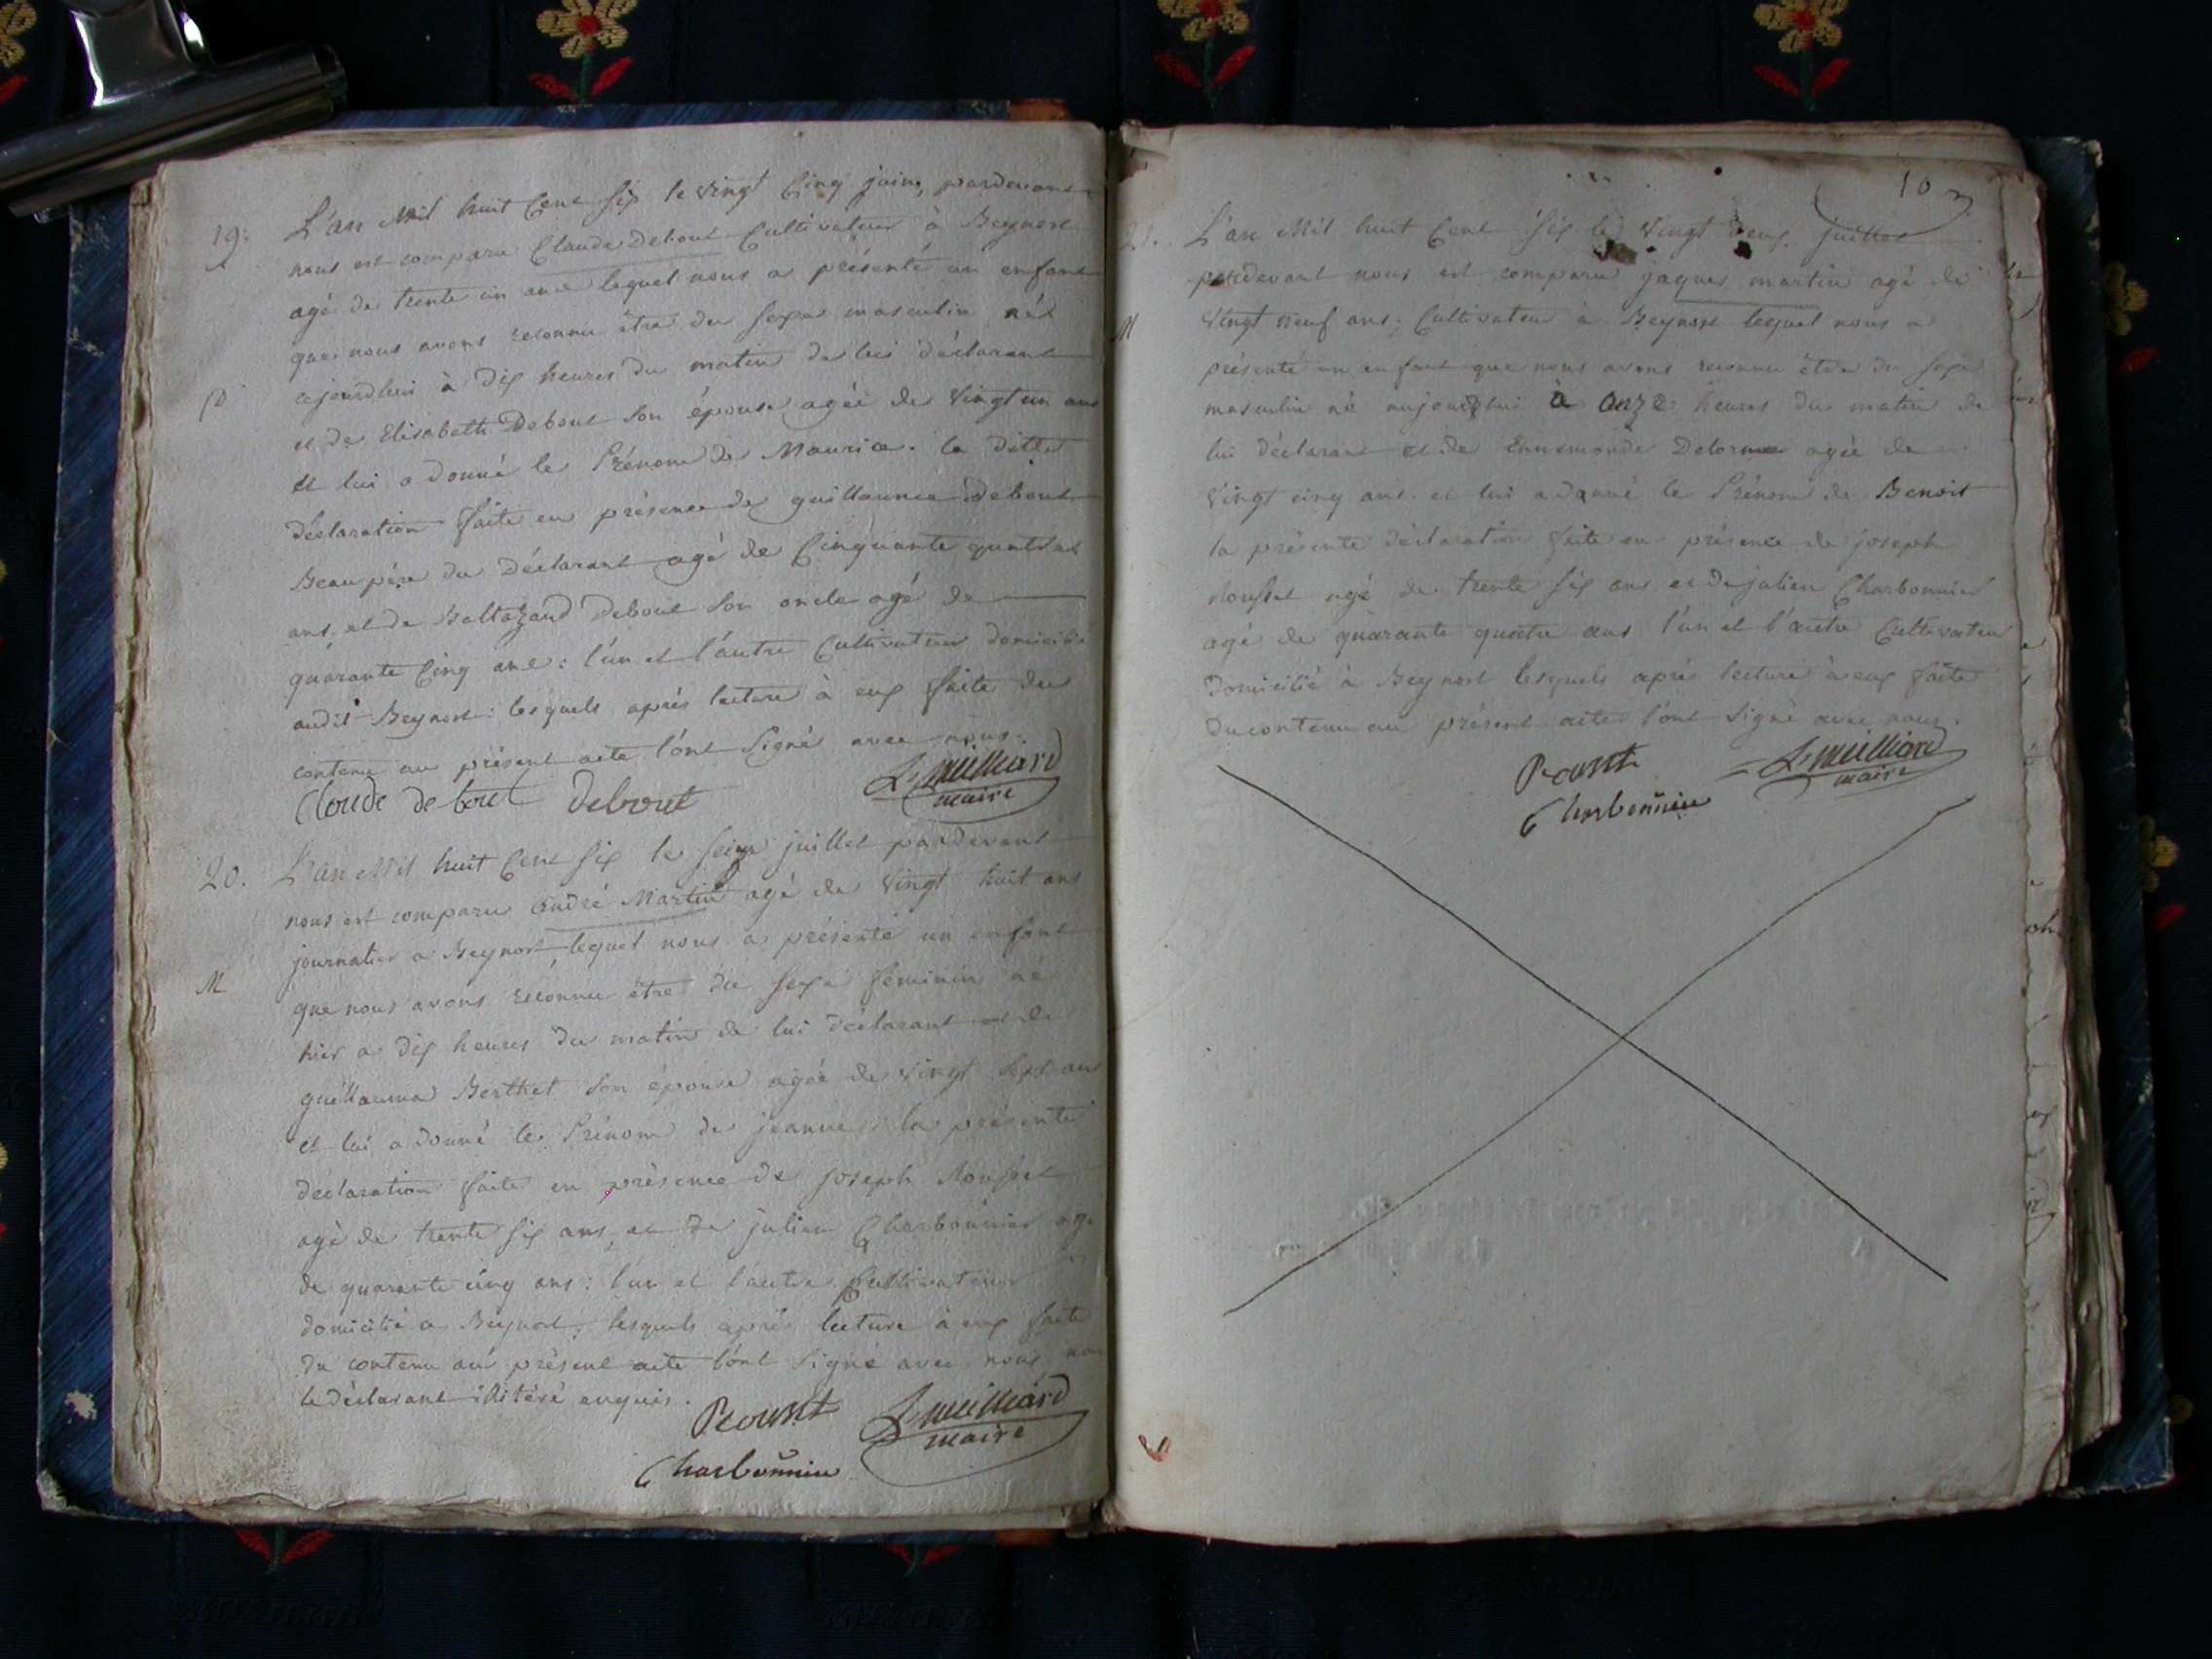 19. L'an Mil huit Cent Six le vingt Cinq juin, pardevant
nous est comparu Claude Debout Cultivateur à Beynost
agé de trente un ans lequel nous a présenté un enfant
que nous avons reconnu être du sexe masculin né
cejourdhui à dix heures du matin de lui déclarant
D
et de Elisabeth Debout son épouse agée de Vingt un ans
et lui a donné le Prénom de Maurice. la ditte
déclaration faite en présence de guillaume Debout
Beaupére du déclarant agé de Cinquante quatre
ans et de Baltazard Debout son oncle agé de
quarante Cinq ans : l'un et l'autre Cultivateur domicilié
audit Beynost : lesquels aprés lecture à eux faite du
contenu au présent acte l'ont Signé avec nous.
Claude debout debout
maire
20. L'an Mil huit Cent Six le juillet pardevant
nous est comparu andré Martin agé de Vingt huit ans
journalier a Beynost, lequel nous a présenté un enfant
M
que nous avons reconnu être du sexe féminin né
hier a dix heures du matin de lui déclarant et de
guillauma Berthet son épouse agée de vingt sept ans
et lui a donné le Prénom de jeanne : la présente
déclaration faite en présence de joseph Rousset
agé de trente six ans, et de julien Charbonnier agé
de quarante cinq ans : l'un et l'autre Cultivateur
domicilié a Beynost, lesquels aprés lecture à eux faite
du contenu au présent acte l'ont Signé avec nous, non
le déclarant illitéré enquis.
maire
Charbonnier
10
21. L'an Mil huit Cent Six le Vingt deux juillet
pardevant nous est comparu jaques martin agé de
M
Vingt neuf ans, Cultivateur à Beynost lequel nous a
présenté un enfant que nous avons reconnu être du sexe
masculin né aujourdhui à onze heures du matin de
lui déclarant et de Ennemonde Delorme agée de
Vingt cinq ans. et lui a donné le Prénom de Benoit
la présente déclaration faite en présence de joseph
Rousset agé de trente six ans et de julien Charbonnier
agé de quarante quatre ans l'un et l'autre Cultivateur
domicilié à Beynost lesquels aprés lecture à eux faite
du contenu au présent acte l'ont Signé avec nous.
maire
Charbonnier